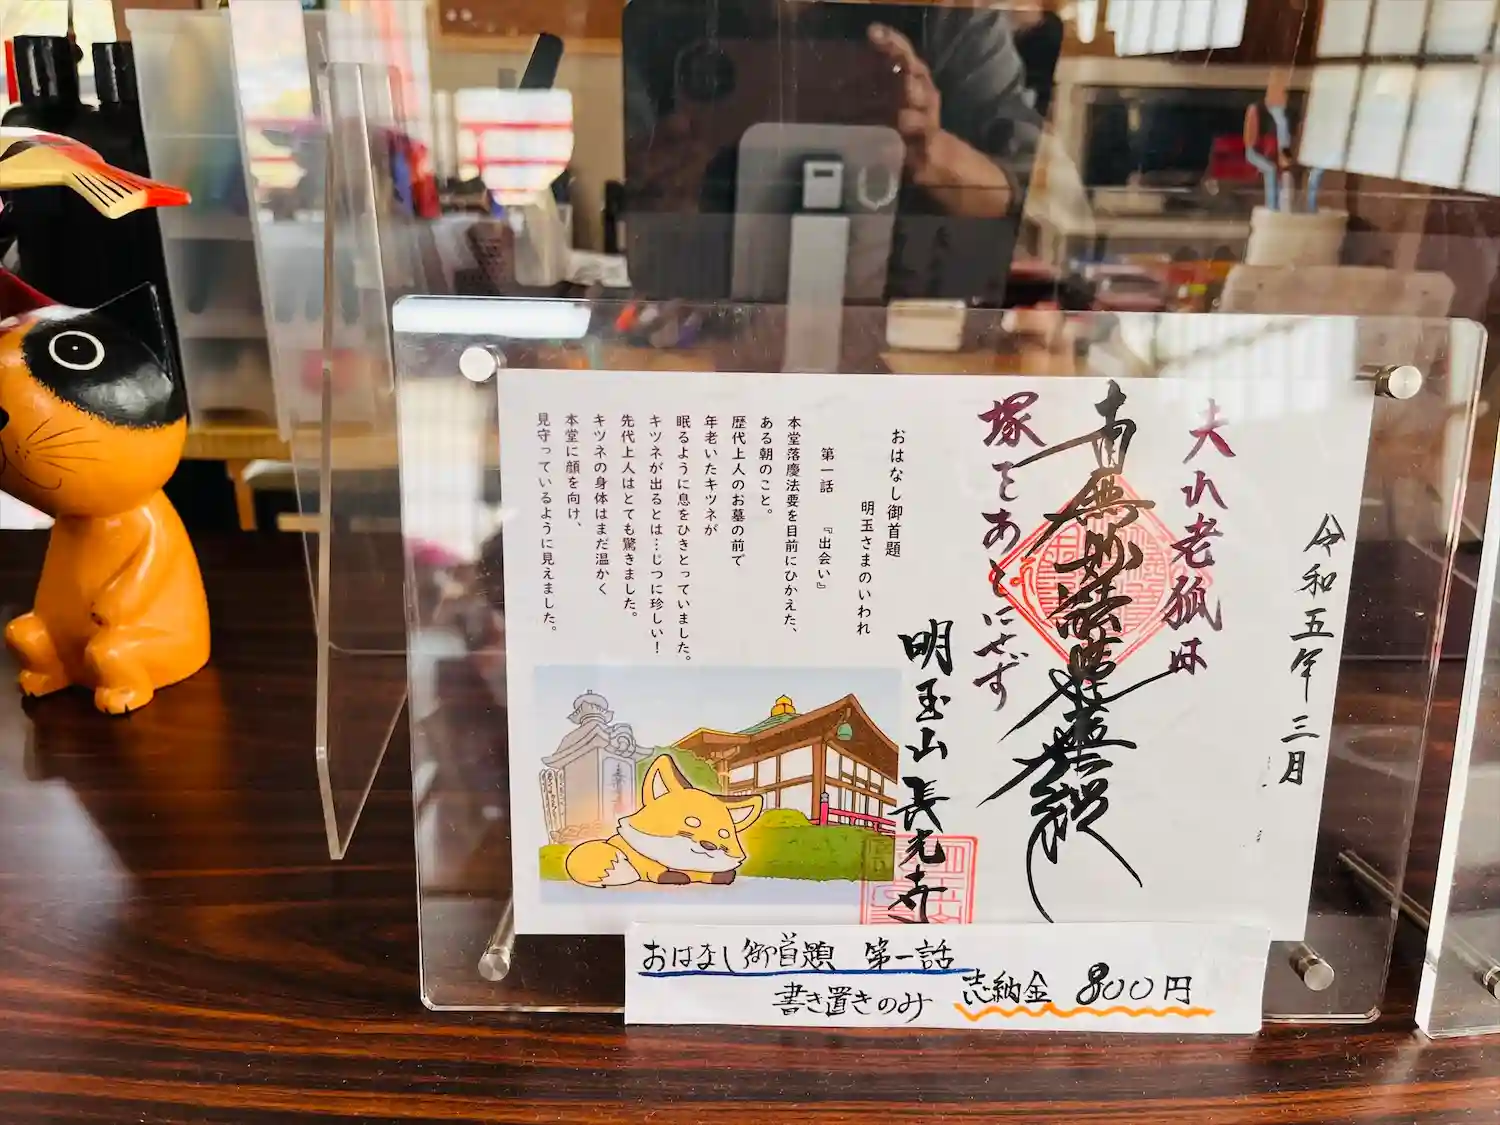 令和五年三月
夫れ老狐は
塚をあとにせず
南無妙法蓮華経
明玉山 長光寺
おはなし御首題
明玉さまのいわれ
第一話 『出会い』
本堂落慶法要を目前にひかえた、
ある朝のこと。
歴代上人のお墓の前で
年老いたキツネが
眠るように息をひきとっていました。
キツネが出るとは…じつに珍しい！
先代上人はとても驚きました。
キツネの身体はまだ温かく
本堂に顔を向け、
見守っているように見えました。
おはなし御首題 第一話
書き置きのみ 志納金 800円